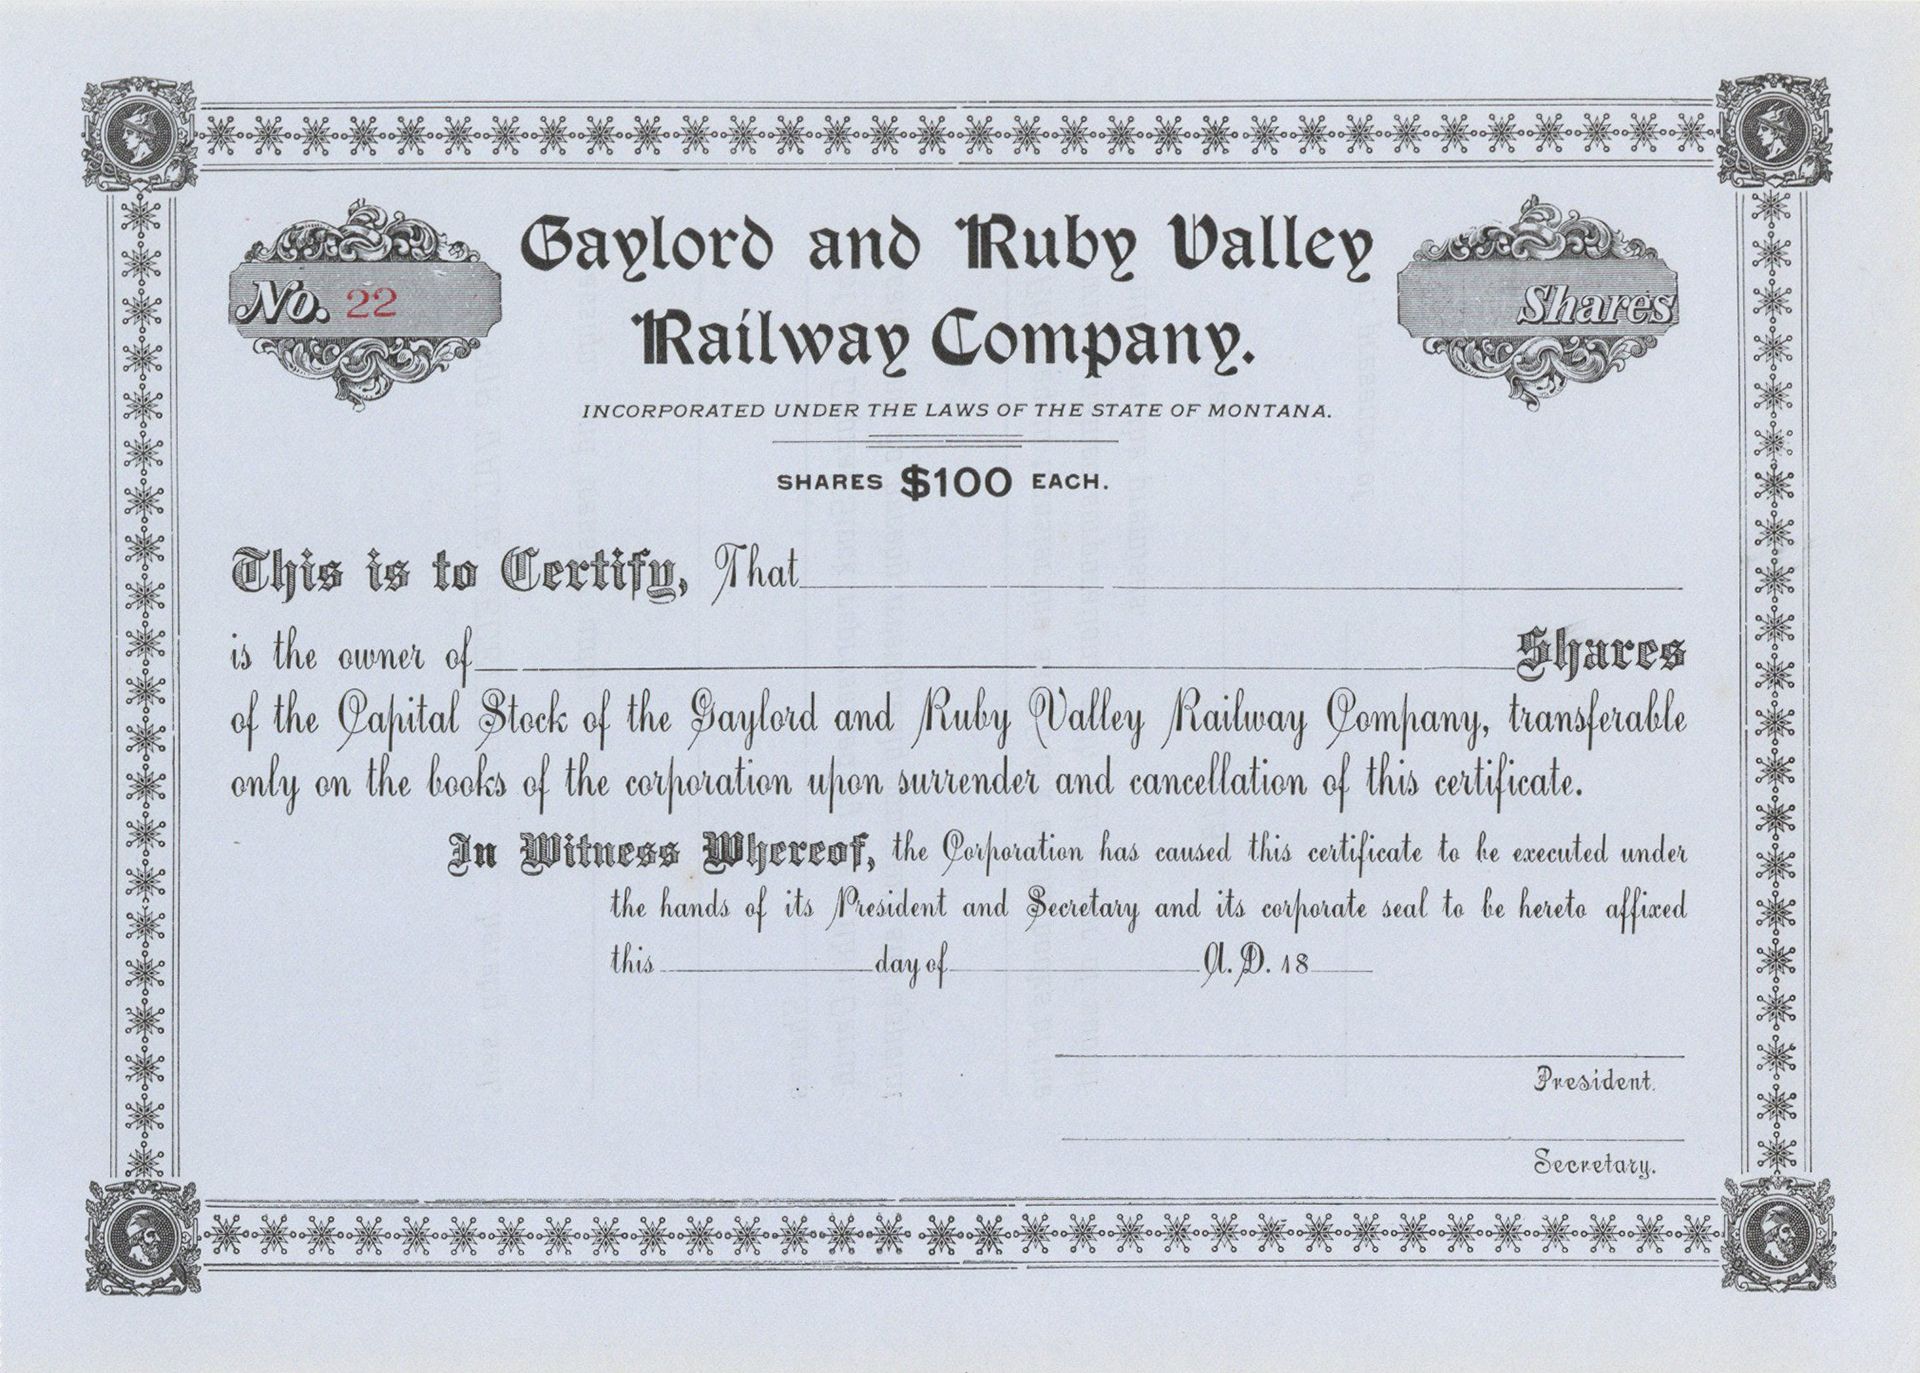 Gaylord and Ruby Valley
No. 22
Railway Company.
Shares
INCORPORATED UNDER THE LAWS OF THE STATE OF MONTANA.
SHARES $100 EACH.
This is to Certify, That
is the owner of Shares
of the Capital Stock of the Gaylord and Ruby Valley Railway Company, transferable
only on the books of the corporation upon surrender and cancellation of this certificate.
In Witness Whereof, the Corporation has caused this certificate to be executed under
the hands of its President and Secretary and its corporate seal to be hereto affixed
this day of A. D. 18
President.
Secretary.